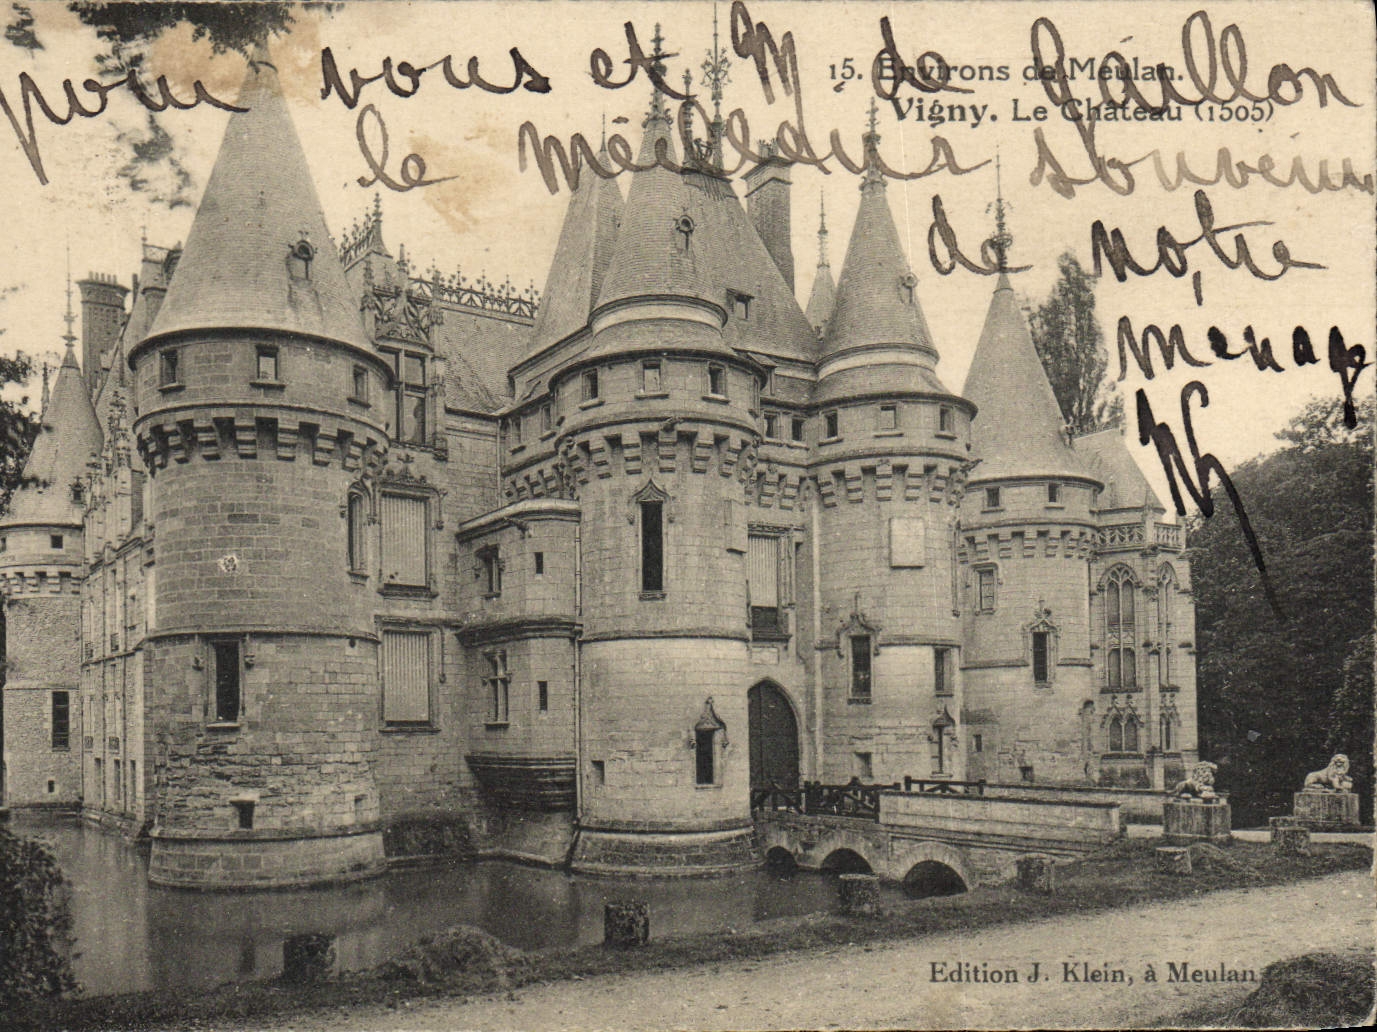 pour vous et M de Gaillon
15. Environs de Meulan.
Vigny. Le Château (1505)
le meilleur souvenir
de notre
ménage
Edition J. Klein, à Meulan